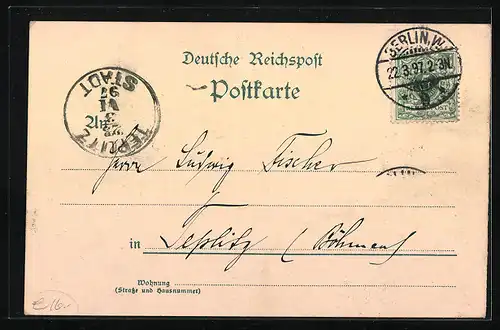 Deutsche Reichspost
Postkarte
BERLIN, W.
22.3.97. 2-3N.
TEPLITZ
STADT
23
3
VI
97
An
Herrn Ludwig Fischer
in Teplitz (Böhmen)
Wohnung
(Straße und Hausnummer)
€16.-